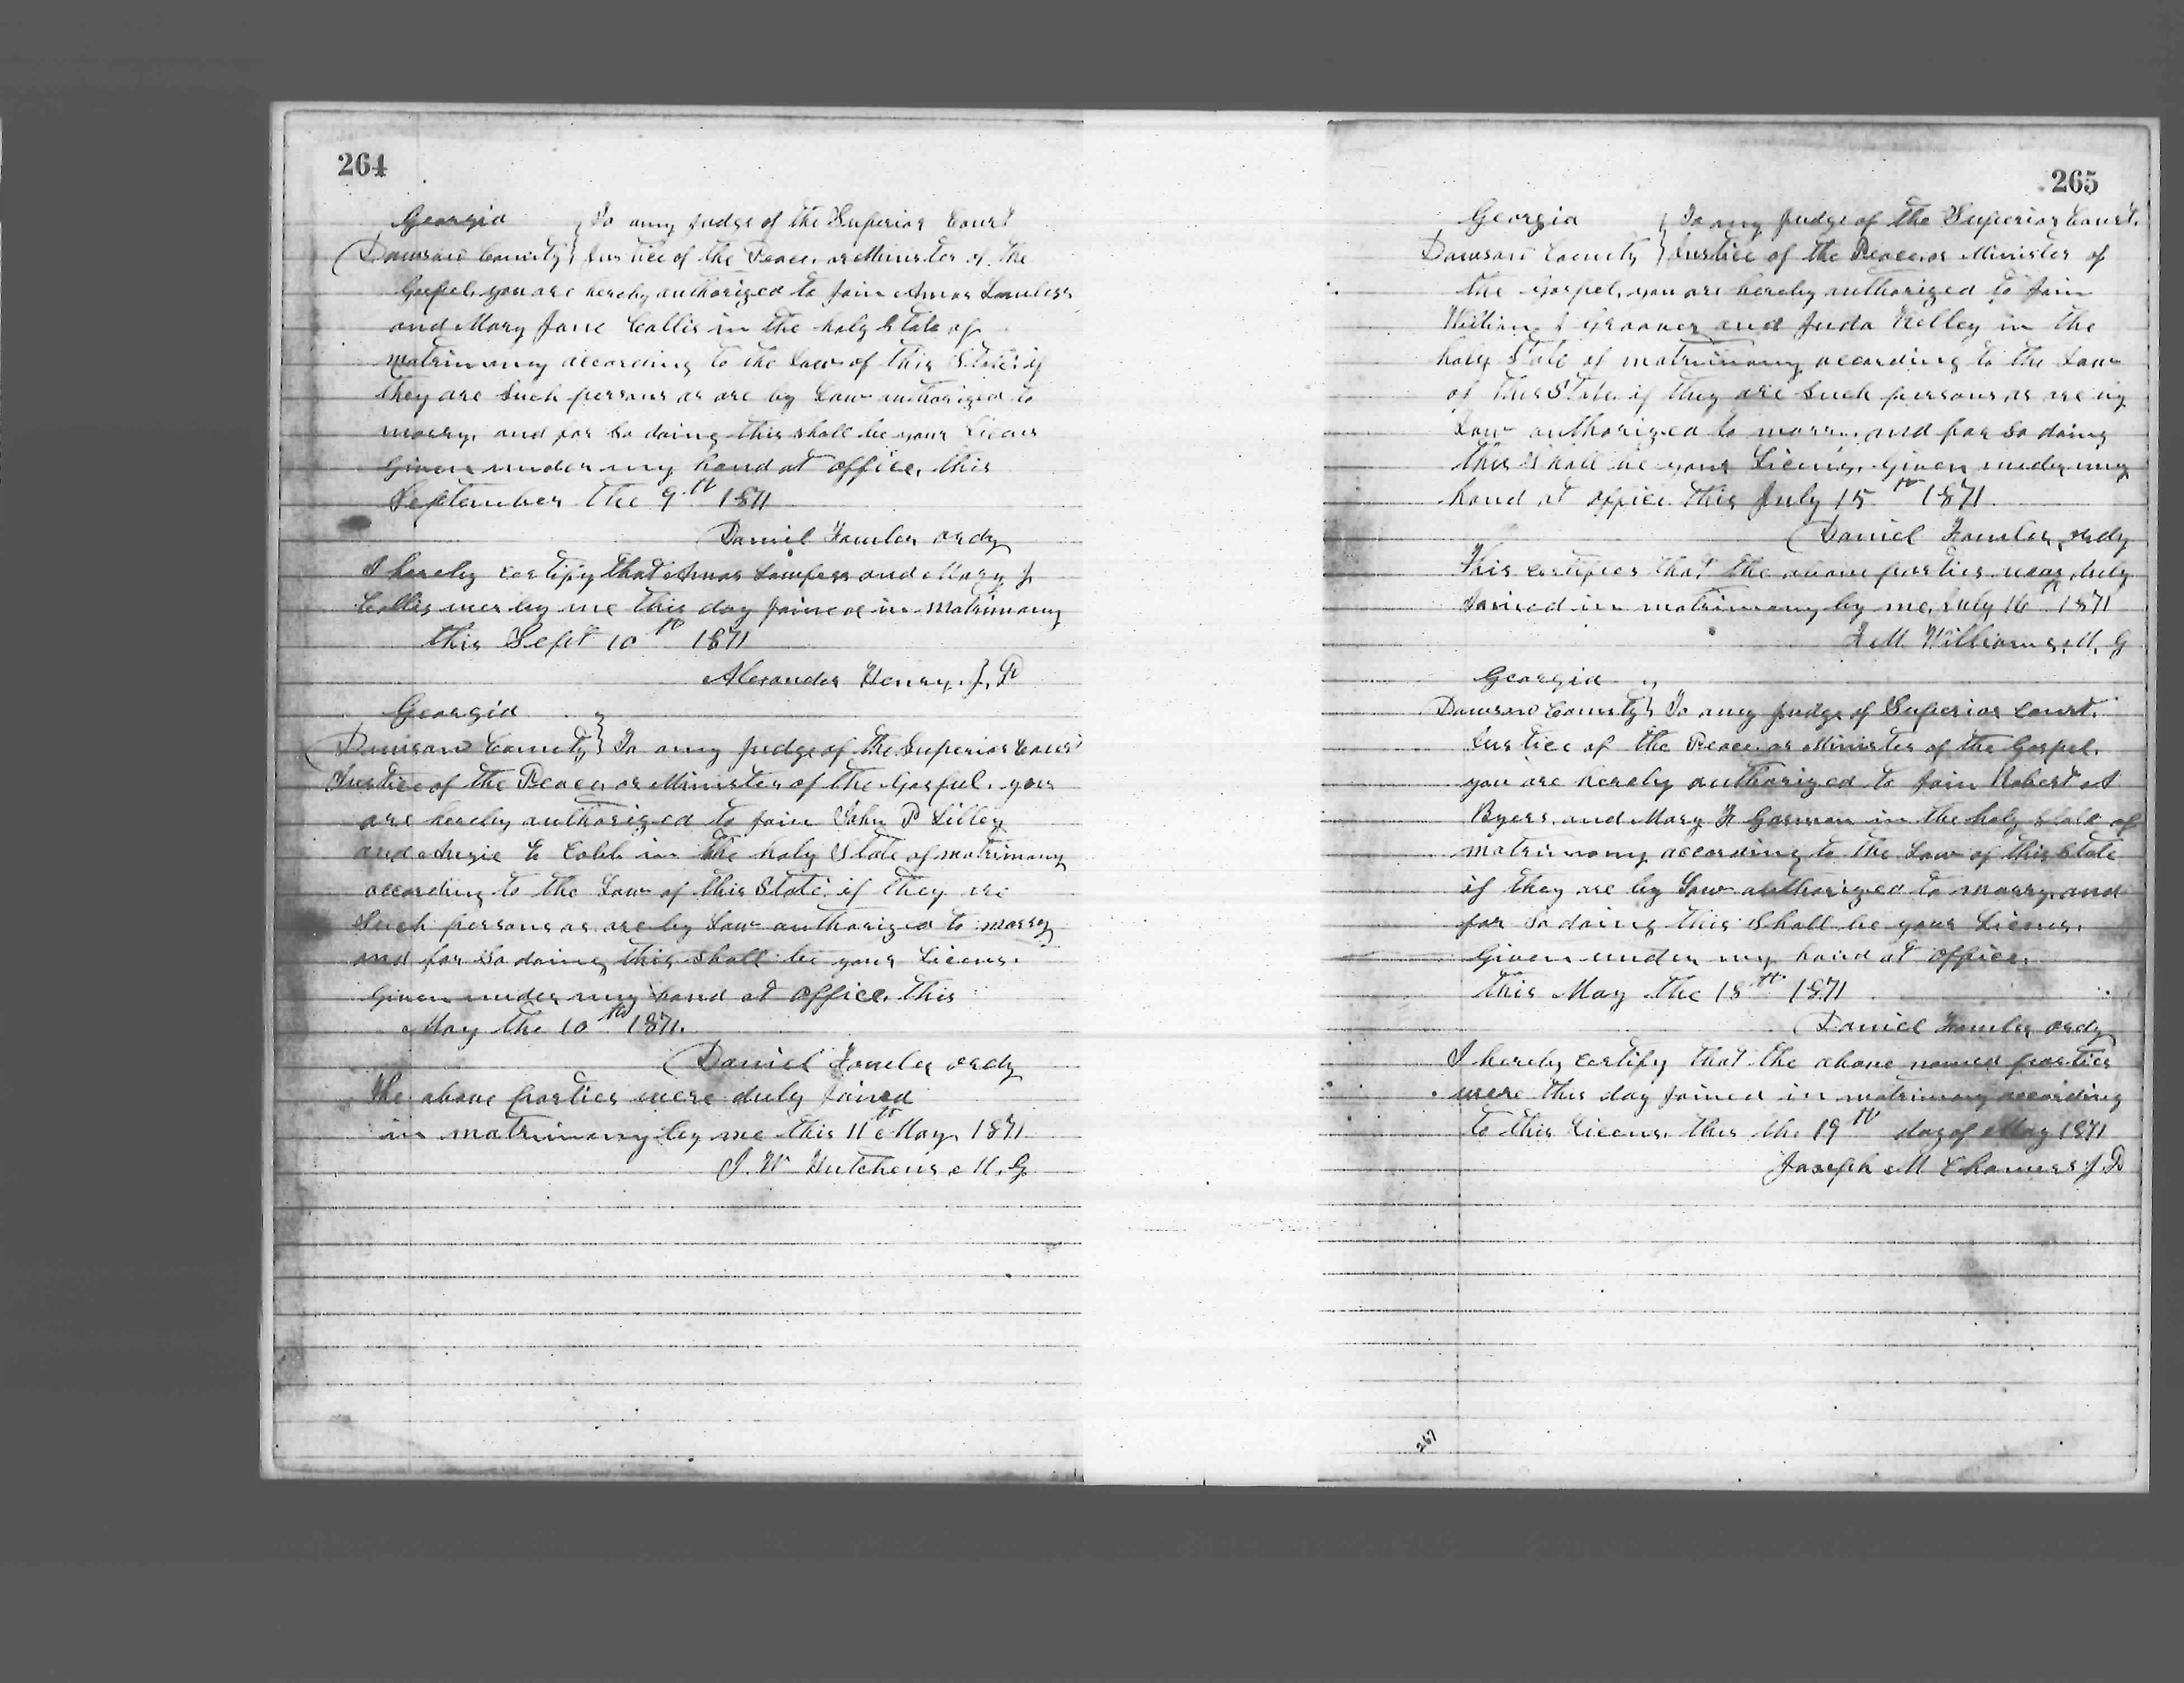 264
Georgia } To any Judge of the Superior Court
Dawson County } Justice of the Peace, or Minister of the
Gospel, you are hereby authorized to Join Amos Lawless
and Mary Jane Collis in the holy State of
matrimony according to the Law of this State if
they are Such persons as are by Law authorized to
marry, and for So doing this shall be your Licens
Given under my hand at office, this
September the 9th 1871
Daniel Fowler ordy
I hereby certify that Amos Lawless and Mary J.
Collis wer by me this day Joined in Matrimony
this Sept 10th 1871
Alexander Henry. J. P
Georgia
Dawson County } To any Judge of the Superior Court
Justice of the Peace, or Minister of the Gospel. you
are hereby authorized to Join John P Lilley
and Angie E Cobb in the holy State of matrimony
according to the Law of this State if they are
Such persons as are by Law authorized to marry
and for So doing this shall be your Licens.
Given under my hand at office, this
May the 10th 1871.
Daniel Fowler ordy
The above parties were duly Joined
in matrimony by me this 11th May 1871
J. W Hutchens M. G.
265
Georgia } To any Judge of the Superior Court.
Dawson County } Justice of the Peace, or Minister of
the Gospel, you are hereby authorized to Join
William J Groover and Juda Kelley in the
holy State of matrimony according to the Law
of this State. if they are Such persons as are by
Law authorized to marry. and for So doing
this Shall be your Licens. Given under my
hand at office this July 15th 1871.
Daniel Fowler, ordy
This certifies that the above parties was duly
Joined in matrimony by me, July 16th 1871
Williams, M. G
Georgia
Dawson County } To any Judge of Superior Court.
Justice of the Peace, or Minister of the Gospel.
you are hereby authorized to Join Robert A
Byers, and Mary F Gorman in the holy State of
matrimony according to the Law of this State
if they are by Law authorized to marry, and
for So doing this Shall be your Licens.
Given under my hand at office.
this May the 18th 1871
Daniel Fowler ordy
I hereby certify that the above named parties
were this day Joined in matrimony according
to this Licens. this the 19th day of May 1871
Joseph M J. P
267